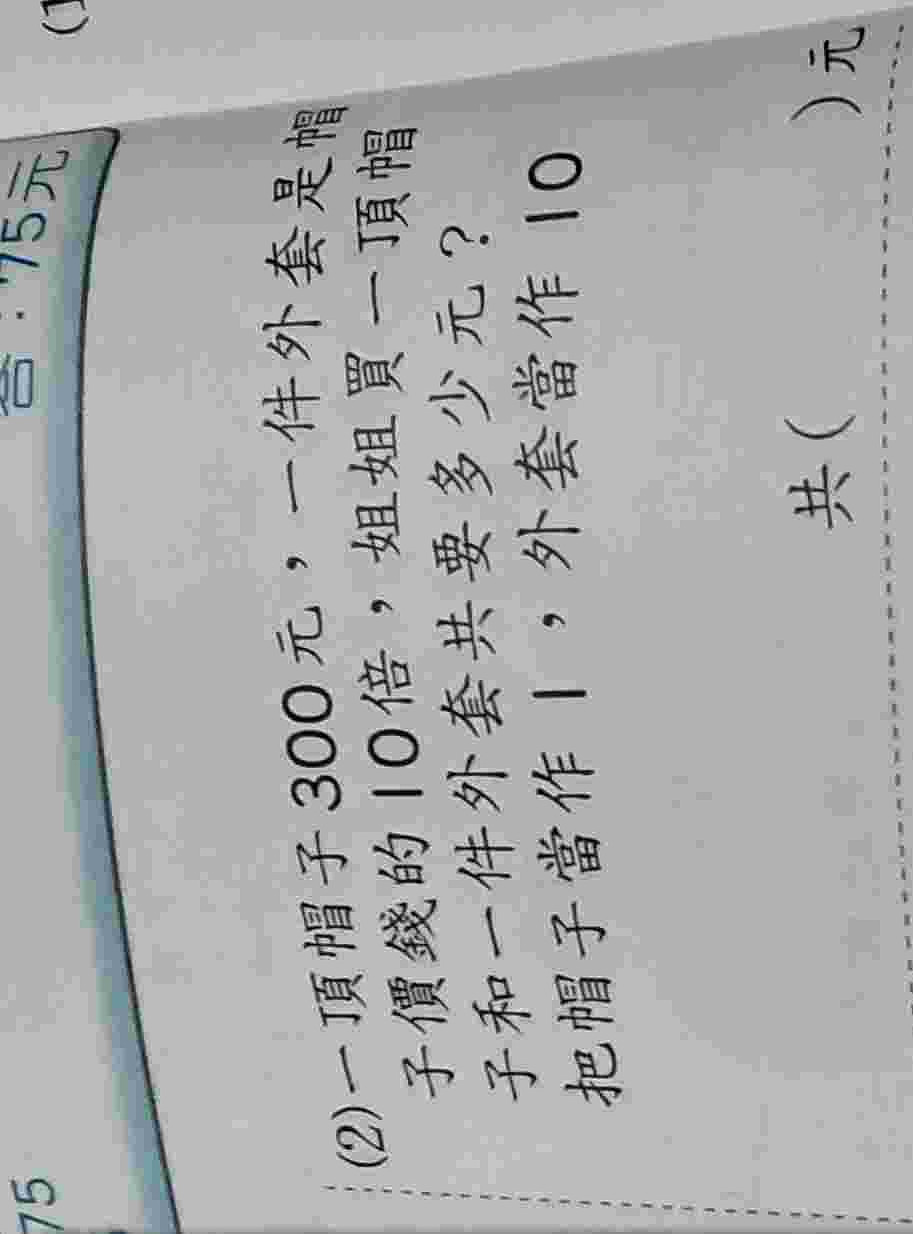 (1
75
答：75元
(2)一頂帽子300元，一件外套是帽
子價錢的10倍，姐姐買一頂帽
子和一件外套共要多少元？
把帽子當作 1，外套當作 10
共( )元